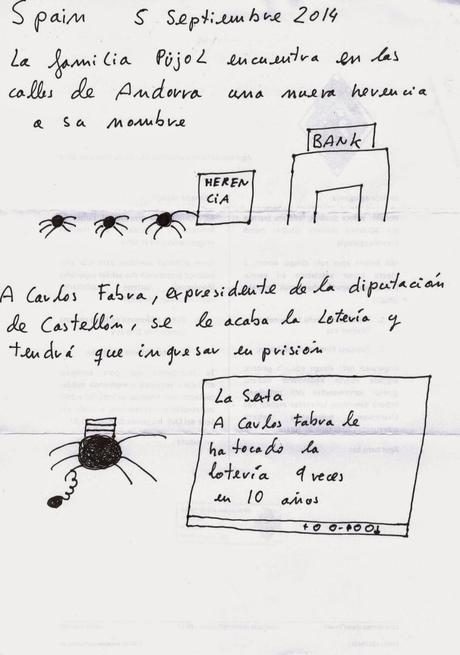 Spain 5 Septiembre 2014
La familia Pujol encuentra en las
calles de Andorra una nueva herencia
a su nombre
BANK
HEREN
CiA
A Carlos Fabra, expresidente de la diputación
de Castellón, se le acaba la Lotería y
tendrá que ingresar en prisión
La Sexta
A Carlos Fabra le
ha tocado la
lotería 9 veces
en 10 años